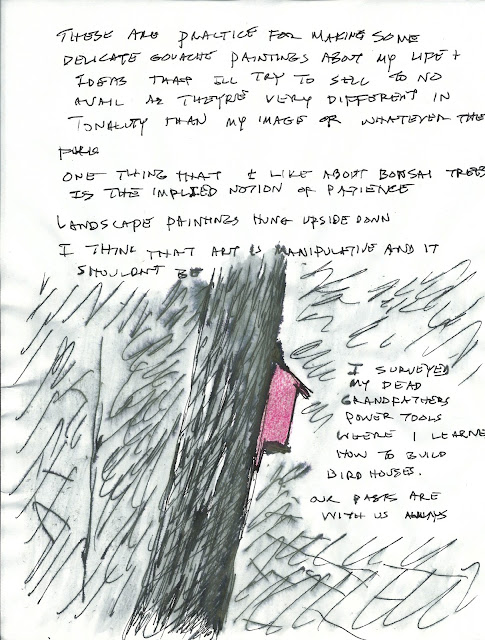 THESE ARE PRACTICE FOR MAKING SOME
DELICATE GOUACHE PAINTINGS ABOUT MY LIFE +
IDEAS THAT ILL TRY TO SELL TO NO
AVAIL AS THEY'RE VERY DIFFERENT IN
TONALITY THAN MY IMAGE OR WHATEVER THE
ONE THING THAT I LIKE ABOUT BONSAI TREES
IS THE IMPLIED NOTION OF PATIENCE
LANDSCAPE PAINTINGS HUNG UPSIDE DOWN
I THINK THAT ART IS MANIPULATIVE AND IT
SHOULDN'T BE
I SURVEYED
MY DEAD
GRANDFATHERS
POWER TOOLS
WHERE I LEARNE
HOW TO BUILD
BIRD HOUSES.
OUR PASTS ARE
WITH US ALWAYS